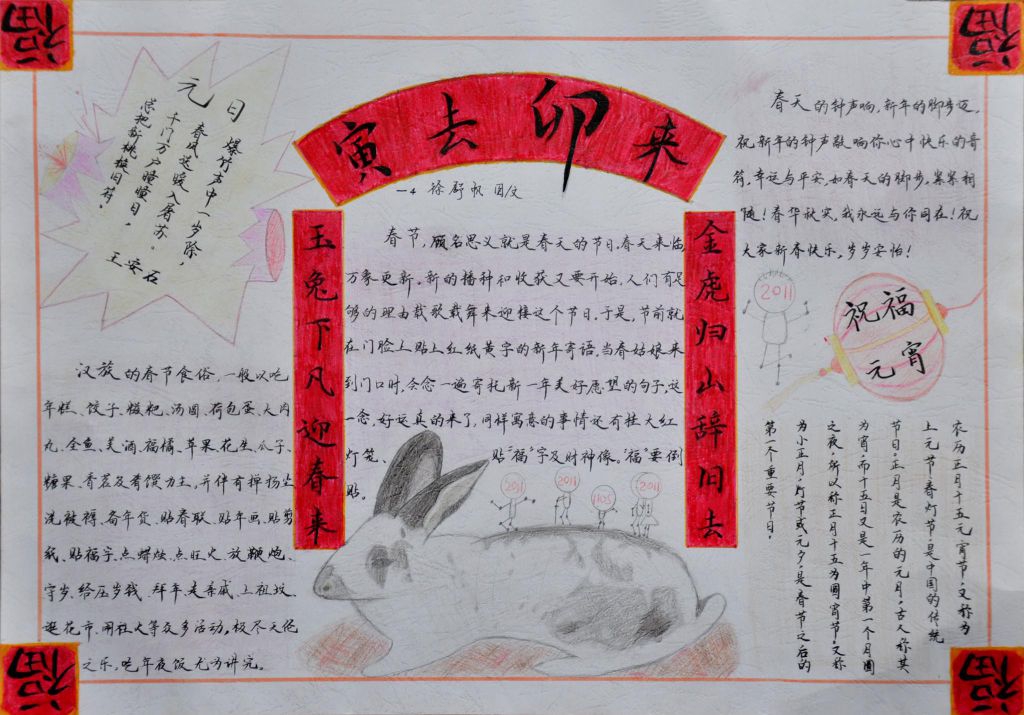 福
福
寅去卯来
一4 徐舒帆 图/文
元日
爆竹声中一岁除,
春风送暖入屠苏。
千门万户曈曈日,
总把新桃换旧符。
王安石
玉兔下凡迎春来
金虎归山辞旧去
春节,顾名思义就是春天的节日。春天来临
万象更新,新的播种和收获又要开始。人们有足
够的理由载歌载舞来迎接这个节日。于是,节前就
在门脸上贴上红纸黄字的新年寄语。当春姑娘来
到门口时,会念一遍寄托新一年美好愿望的句子,这
一念,好运真的来了。同样寓意的事情还有挂大红
灯笼、贴“福”字及财神像。“福”要倒
贴。
春天的钟声响,新年的脚步迈,
祝新年的钟声敲响你心中快乐的音
符,幸运与平安,如春天的脚步,紧紧相
随!春华秋实,我永远与你同在!祝
大家新春快乐,岁岁安怡!
2011
祝福
元宵
汉族的春节食俗,一般以吃
年糕、饺子、糍粑、汤圆、荷包蛋、大肉
丸、全鱼、美酒、福橘、苹果、花生、瓜子、
糖果、香茗及肴馔为主,并伴有掸扬尘
洗被褥、备年货、贴春联、贴年画、贴剪
纸、贴福字、点蜡烛、点旺火、放鞭炮、
守岁、给压岁钱、拜年、走亲戚、上祖坟、
逛花市、闹社火等众多活动,极尽天伦
之乐,吃年夜饭尤为讲究。
2011
2011
2011
2011
农历正月十五元宵节,又称为
上元节,春灯节,是中国的传统
节日。正月是农历的元月,古人称其
为宵,而十五日又是一年中第一个月圆
之夜,所以称正月十五为圆宵节。又称
为小正月,灯节或元夕,是春节之后的
第一个重要节日。
福
福